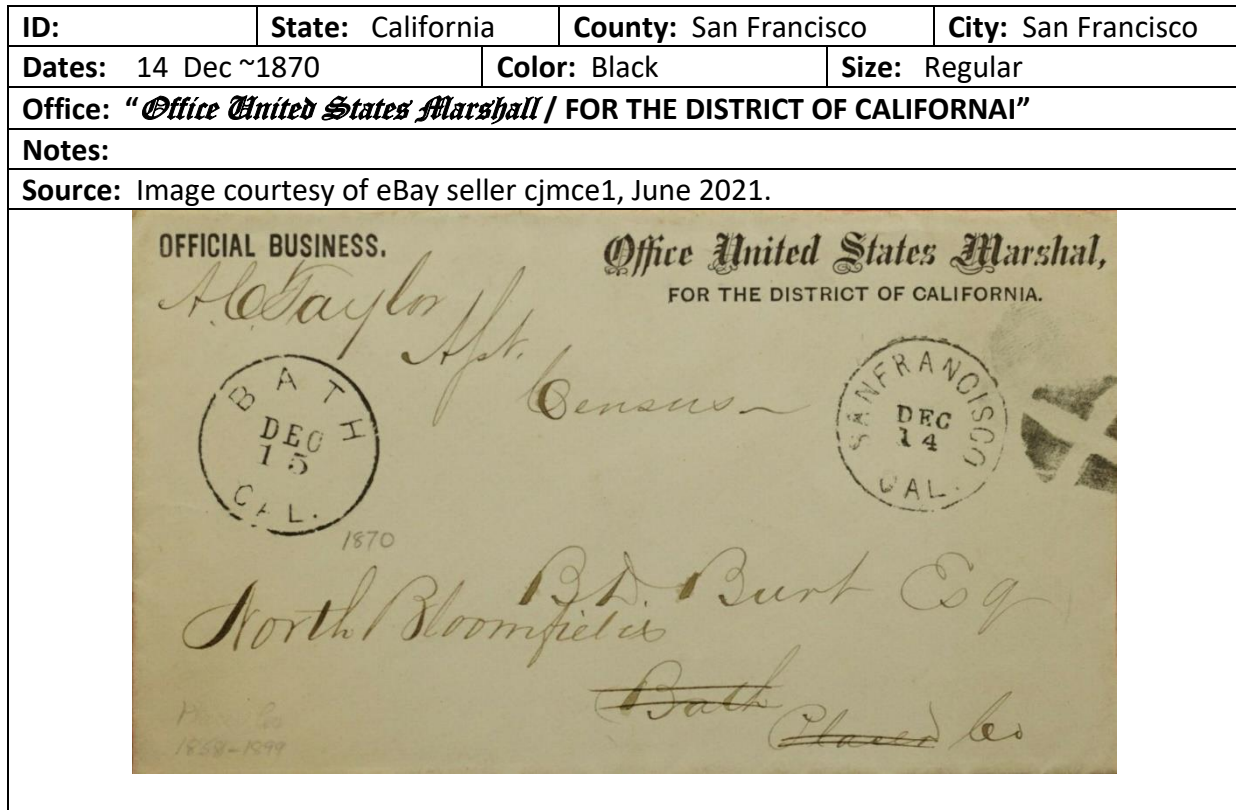 ID: State: California County: San Francisco City: San Francisco
Dates: 14 Dec ~1870 Color: Black Size: Regular
Office: “Office United States Marshall / FOR THE DISTRICT OF CALIFORNAI”
Notes:
Source: Image courtesy of eBay seller cjmce1, June 2021.
OFFICIAL BUSINESS.
Office United States Marshal,
FOR THE DISTRICT OF CALIFORNIA.
A.C. Taylor
Census
BATH
DEC
15
CAL.
SAN FRANCISCO
DEC
14
CAL.
1870
B.D. Burt Esq
North Bloomfield
Bath
Placer Co
1858-1899